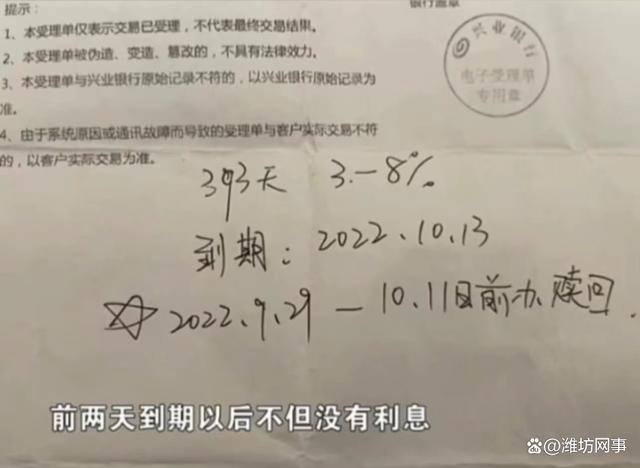 提示：
银行盖章
1、本受理单仅表示交易已受理，不代表最终交易结果。
2、本受理单被伪造、变造、篡改的，不具有法律效力。
3、本受理单与兴业银行原始记录不符的，以兴业银行原始记录为
准。
4、由于系统原因或通讯故障而导致的受理单与客户实际交易不符
的，以客户实际交易为准。
兴业银行
电子受理单
专用章
393天 3.-8%
到期：2022.10.13
☆ 2022.9.29 — 10.11日前办赎回.
前两天到期以后不但没有利息
@潍坊网事